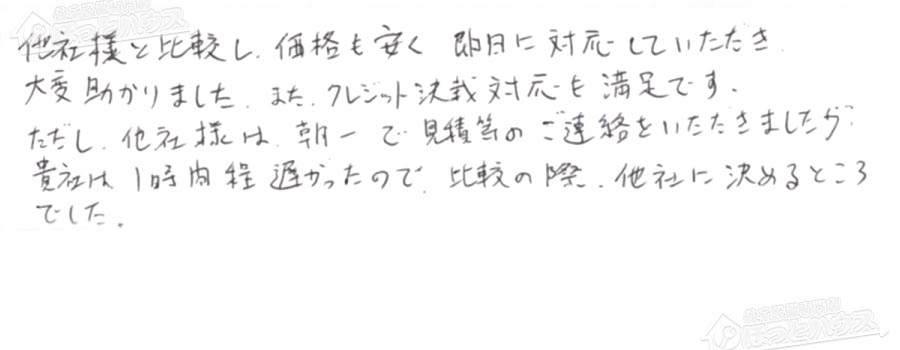 他社様と比較し、価格も安く 即日に対応していただき、
大変助かりました。また、クレジット決裁対応も満足です。
ただし、他社様は、朝一で見積等のご連絡をいただきましたが
貴社は1時間程遅かったので、比較の際、他社に決めるところ
でした。
ほっとハウス
ほっとハウス